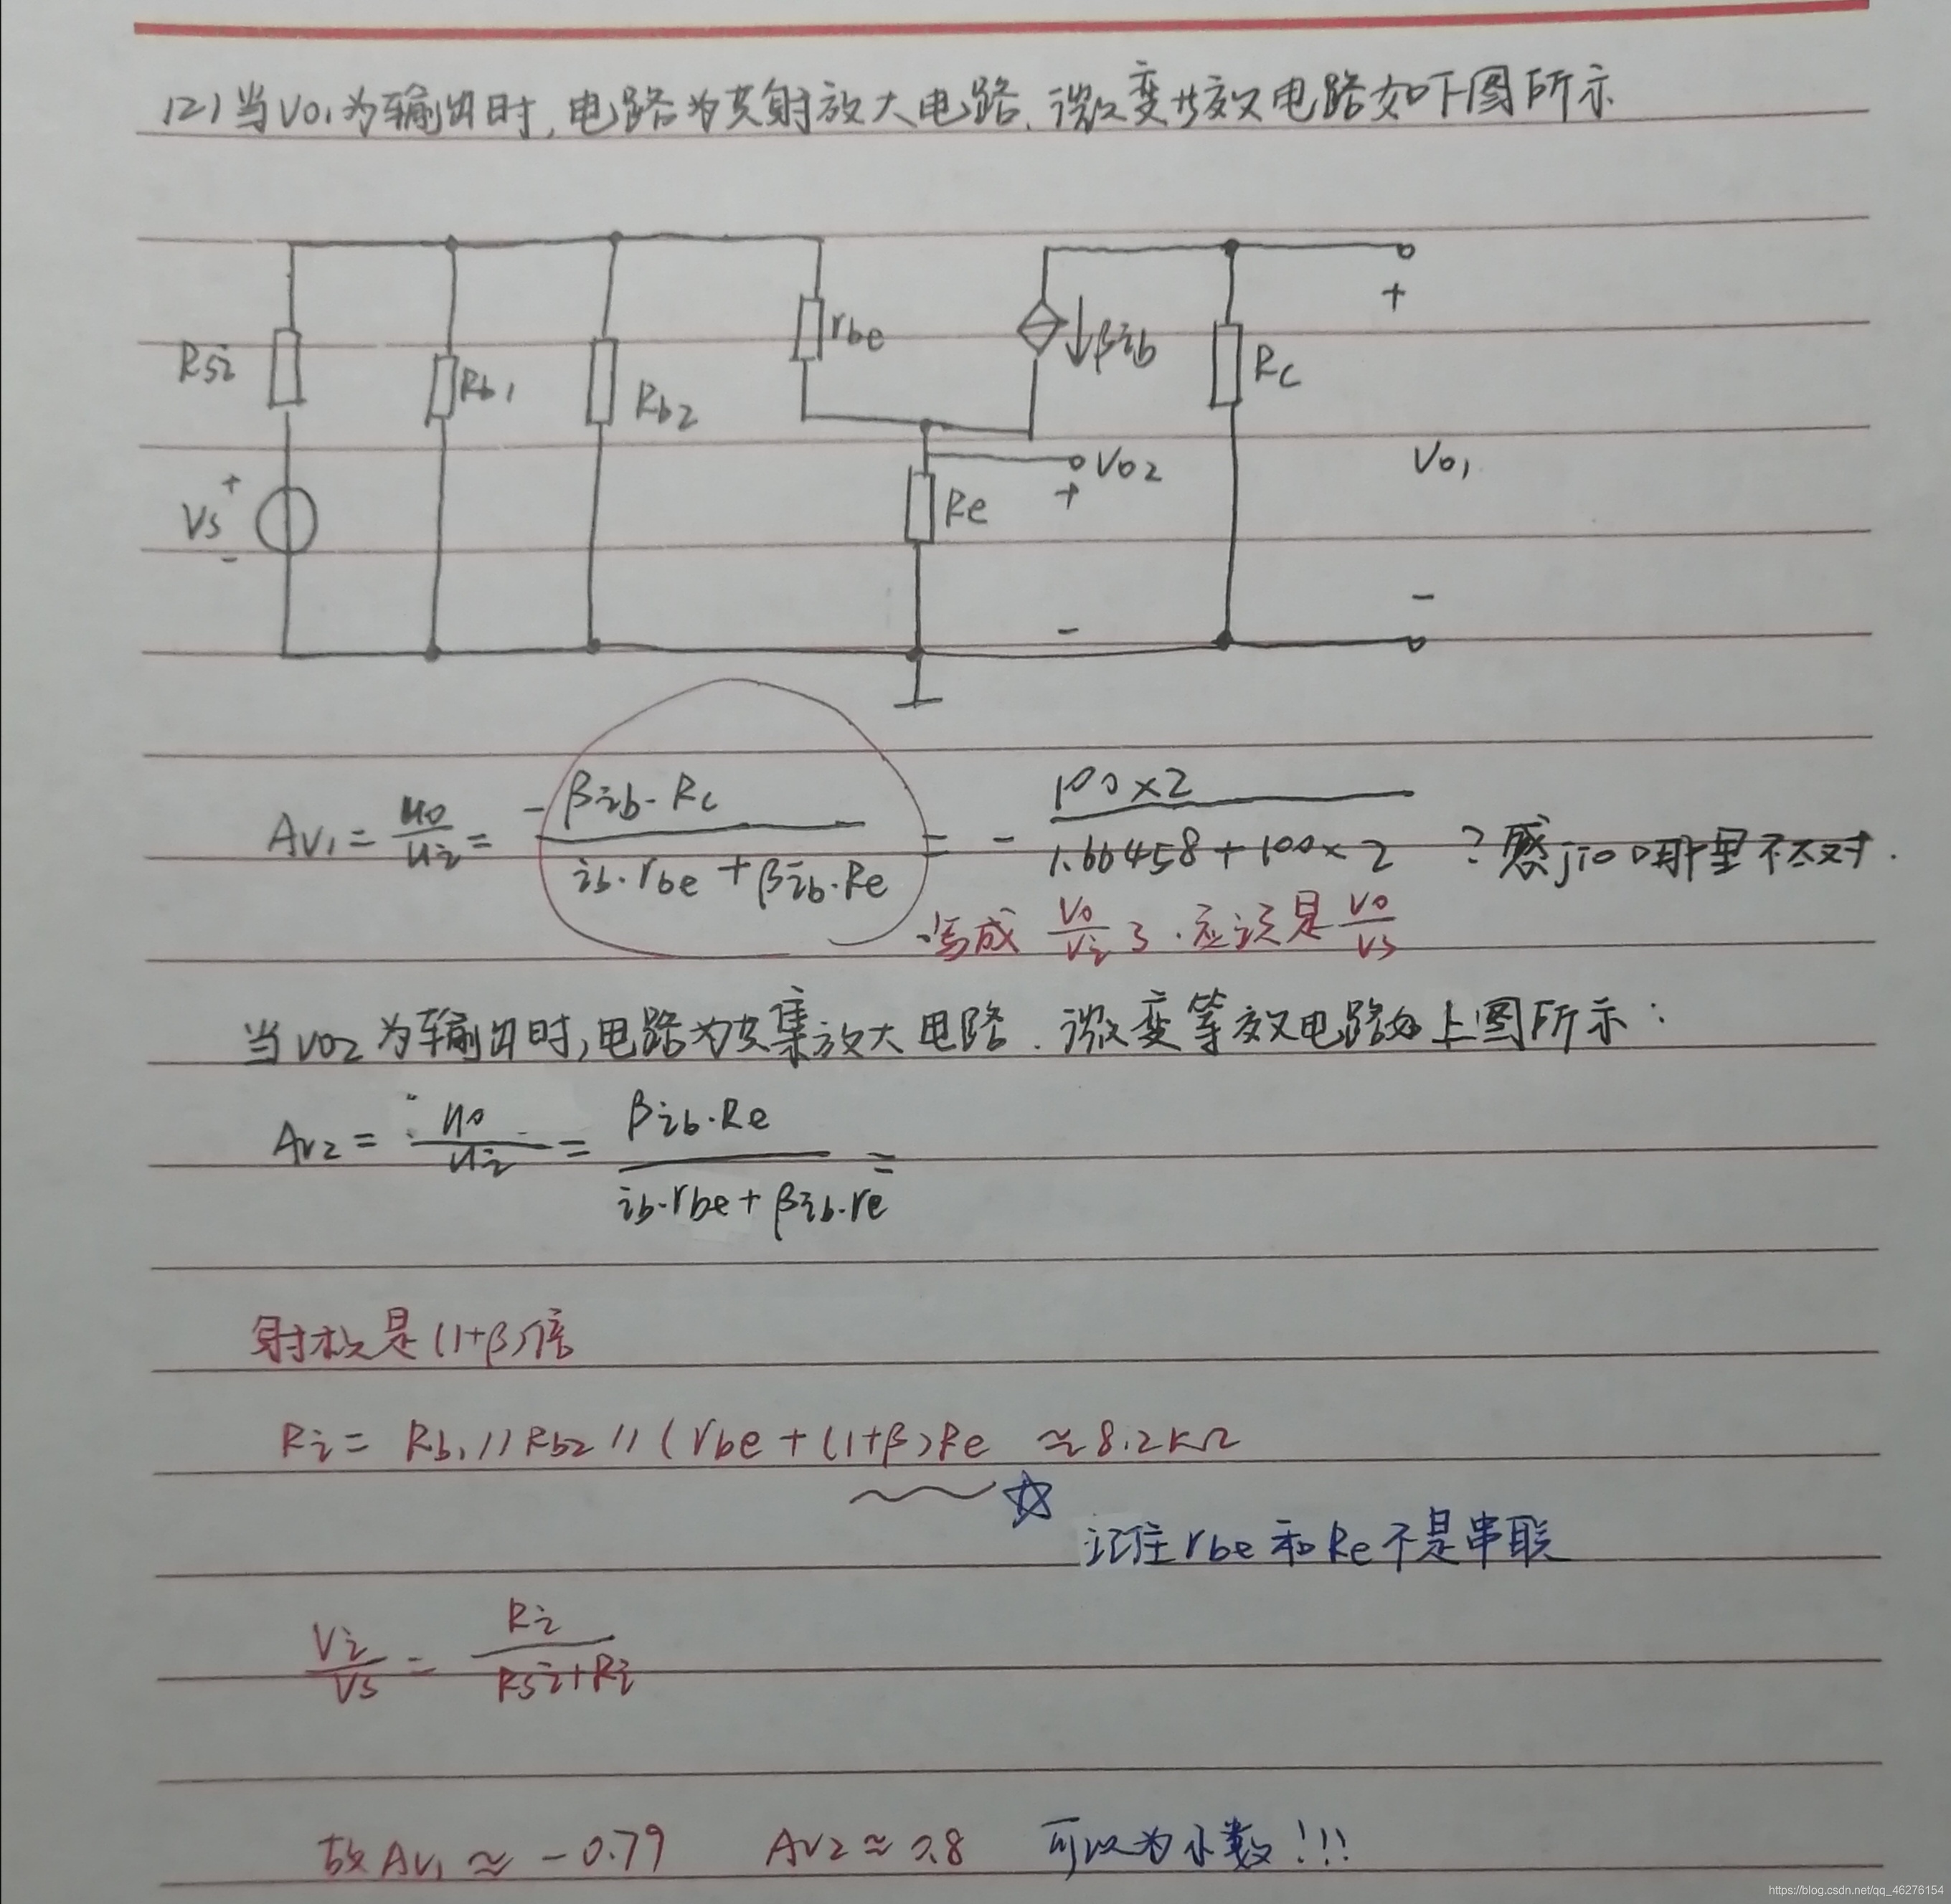 (2)当Vo1为输出时,电路为共射放大电路.微变等效电路如下图所示
Rsi
Rb1
Rb2
rbe
βib
Rc
+
Vs
+
-
Re
Vo2
+
-
Vo1
-
Av1 = uo/ui = - βib·Rc / (ib·rbe + βib·Re) = - 100×2 / (1.66458+100×2) ?感jio哪里不太对.
写成 Vo/Vi 了.应该是 Vo/Vs
当Vo2为输出时,电路为共集放大电路.微变等效电路如上图所示:
Av2 = uo/ui = βib·Re / (ib·rbe + βib·re) =
射极是(1+β)倍
Ri = Rb1//Rb2//(rbe+(1+β)Re ≈8.2KΩ
☆
记住rbe和Re不是串联
Vi/Vs = Ri/(Rsi+Ri)
故Av1 ≈ -0.79 Av2 ≈ 0.8 可以为小数!!!
https://blog.csdn.net/qq_46276154